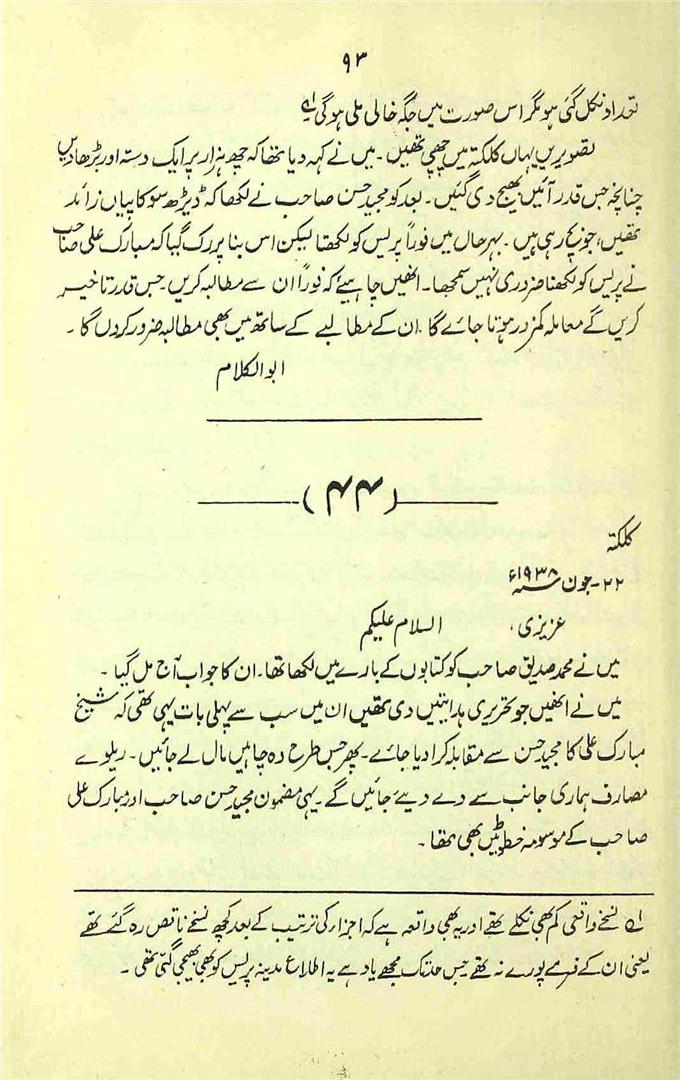 ۹۳
تعداد نکل گئی ہو مگر اس صورت میں جگہ خالی ملی ہوگی لہ
تصویریں یہاں کلکتہ میں چھپی تھیں۔ میں نے کہہ دیا تھا کہ چھ ہزار پر ایک دستہ اور بڑھا دیں
چنانچہ جس قدر آئیں بھیج دی گئیں۔ بعد کو مجید حسن صاحب نے لکھا کہ ڈیڑھ سو کاپیاں زائد
تھیں، جو بچ رہی ہیں۔ بہرحال میں فوراً پریس کو لکھتا لیکن اس بنا پر رک گیا کہ مبارک علی صاحب
نے پریس کو لکھنا ضروری نہیں سمجھا۔ انھیں چاہیئے کہ فوراً ان سے مطالبہ کریں۔ جس قدر تاخیر
کریں گے معاملہ کمزور ہوتا جائے گا۔ ان کے مطالبے کے ساتھ میں بھی مطالبہ ضرور کردوں گا۔
ابوالکلام
(۴۴)
کلکتہ
۲۲۔ جون ۱۹۳۸ء
عزیزی، السلام علیکم
میں نے محمد صدیق صاحب کو کتابوں کے بارے میں لکھا تھا۔ ان کا جواب آج مل گیا۔
میں نے انھیں جو تحریری ہدایتیں دی تھیں ان میں سب سے پہلی بات یہی تھی کہ شیخ
مبارک علی کا مجید حسن سے مقابلہ کرا دیا جائے۔ پھر جس طرح وہ چاہیں مال لے جائیں۔ ریلوے
مصارف ہماری جانب سے دے دیئے جائیں گے۔ یہی مضمون مجید حسن صاحب اور مبارک علی
صاحب کے موسومہ خطوط میں بھی تھا۔
لہ نسخے واقعی کم بھی نکلے تھے اور یہ بھی واقعہ ہے کہ اجزار کی ترتیب کے بعد کچھ نسخے ناقص رہ گئے تھے
یعنی ان کے فرمے پورے نہ تھے جس حد تک مجھے یاد ہے یہ اطلاع مدینہ پریس کو بھی بھیجی گئی تھی۔